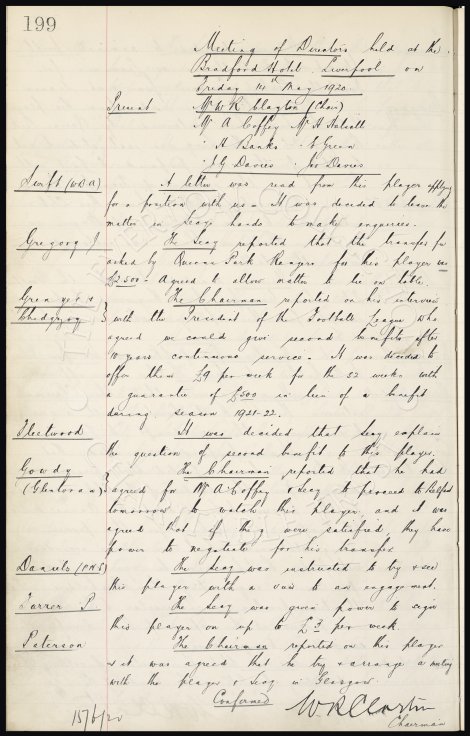 199
Meeting of Directors held at the
Bradford Hotel. Liverpool on
Friday 14th May 1920.
Present Mr W R Clayton (Chair)
Mr A Coffey Mr H Halsall
" H Banks " E Green
" J G Davies " Jas Davies
Swift (WBA) A letter was read from this player applying
for a position with us. It was decided to leave the
matter in Secys hands to make enquiries.
Gregory J The Secy reported that the transfer fee
asked by Queens Park Rangers for this player was
£2500 - Agreed to allow matter to lie on table.
Grenyer & The Chairman reported on his interview
Chedgzoy } with the President of the Football League who
agreed we could give second benefits after
10 years continuous service. It was decided to
offer them £9 per week for the 52 weeks with
a guarantee of £500 in lieu of a benefit
during season 1921-22.
Fleetwood It was decided that Secy explain
the question of second benefit to this player.
Gowdy The Chairman reported that he had
(Glentoran) } agreed for Mr A Coffey & Secy to proceed to Belfast
tomorrow to watch this player, and it was
agreed that if they were satisfied, they have
power to negotiate for his transfer
Daniels (PNE) The Secy was instructed to try & see
this player with a view to an engagement.
Farrer P The Secy was given power to sign
this player on up to per week.
Paterson The Chairman reported on this player
& it was agreed that he try & arrange a meeting
with the player & Secy in Glasgow.
Confirmed
15/6/20 W R Clayton
Chairman